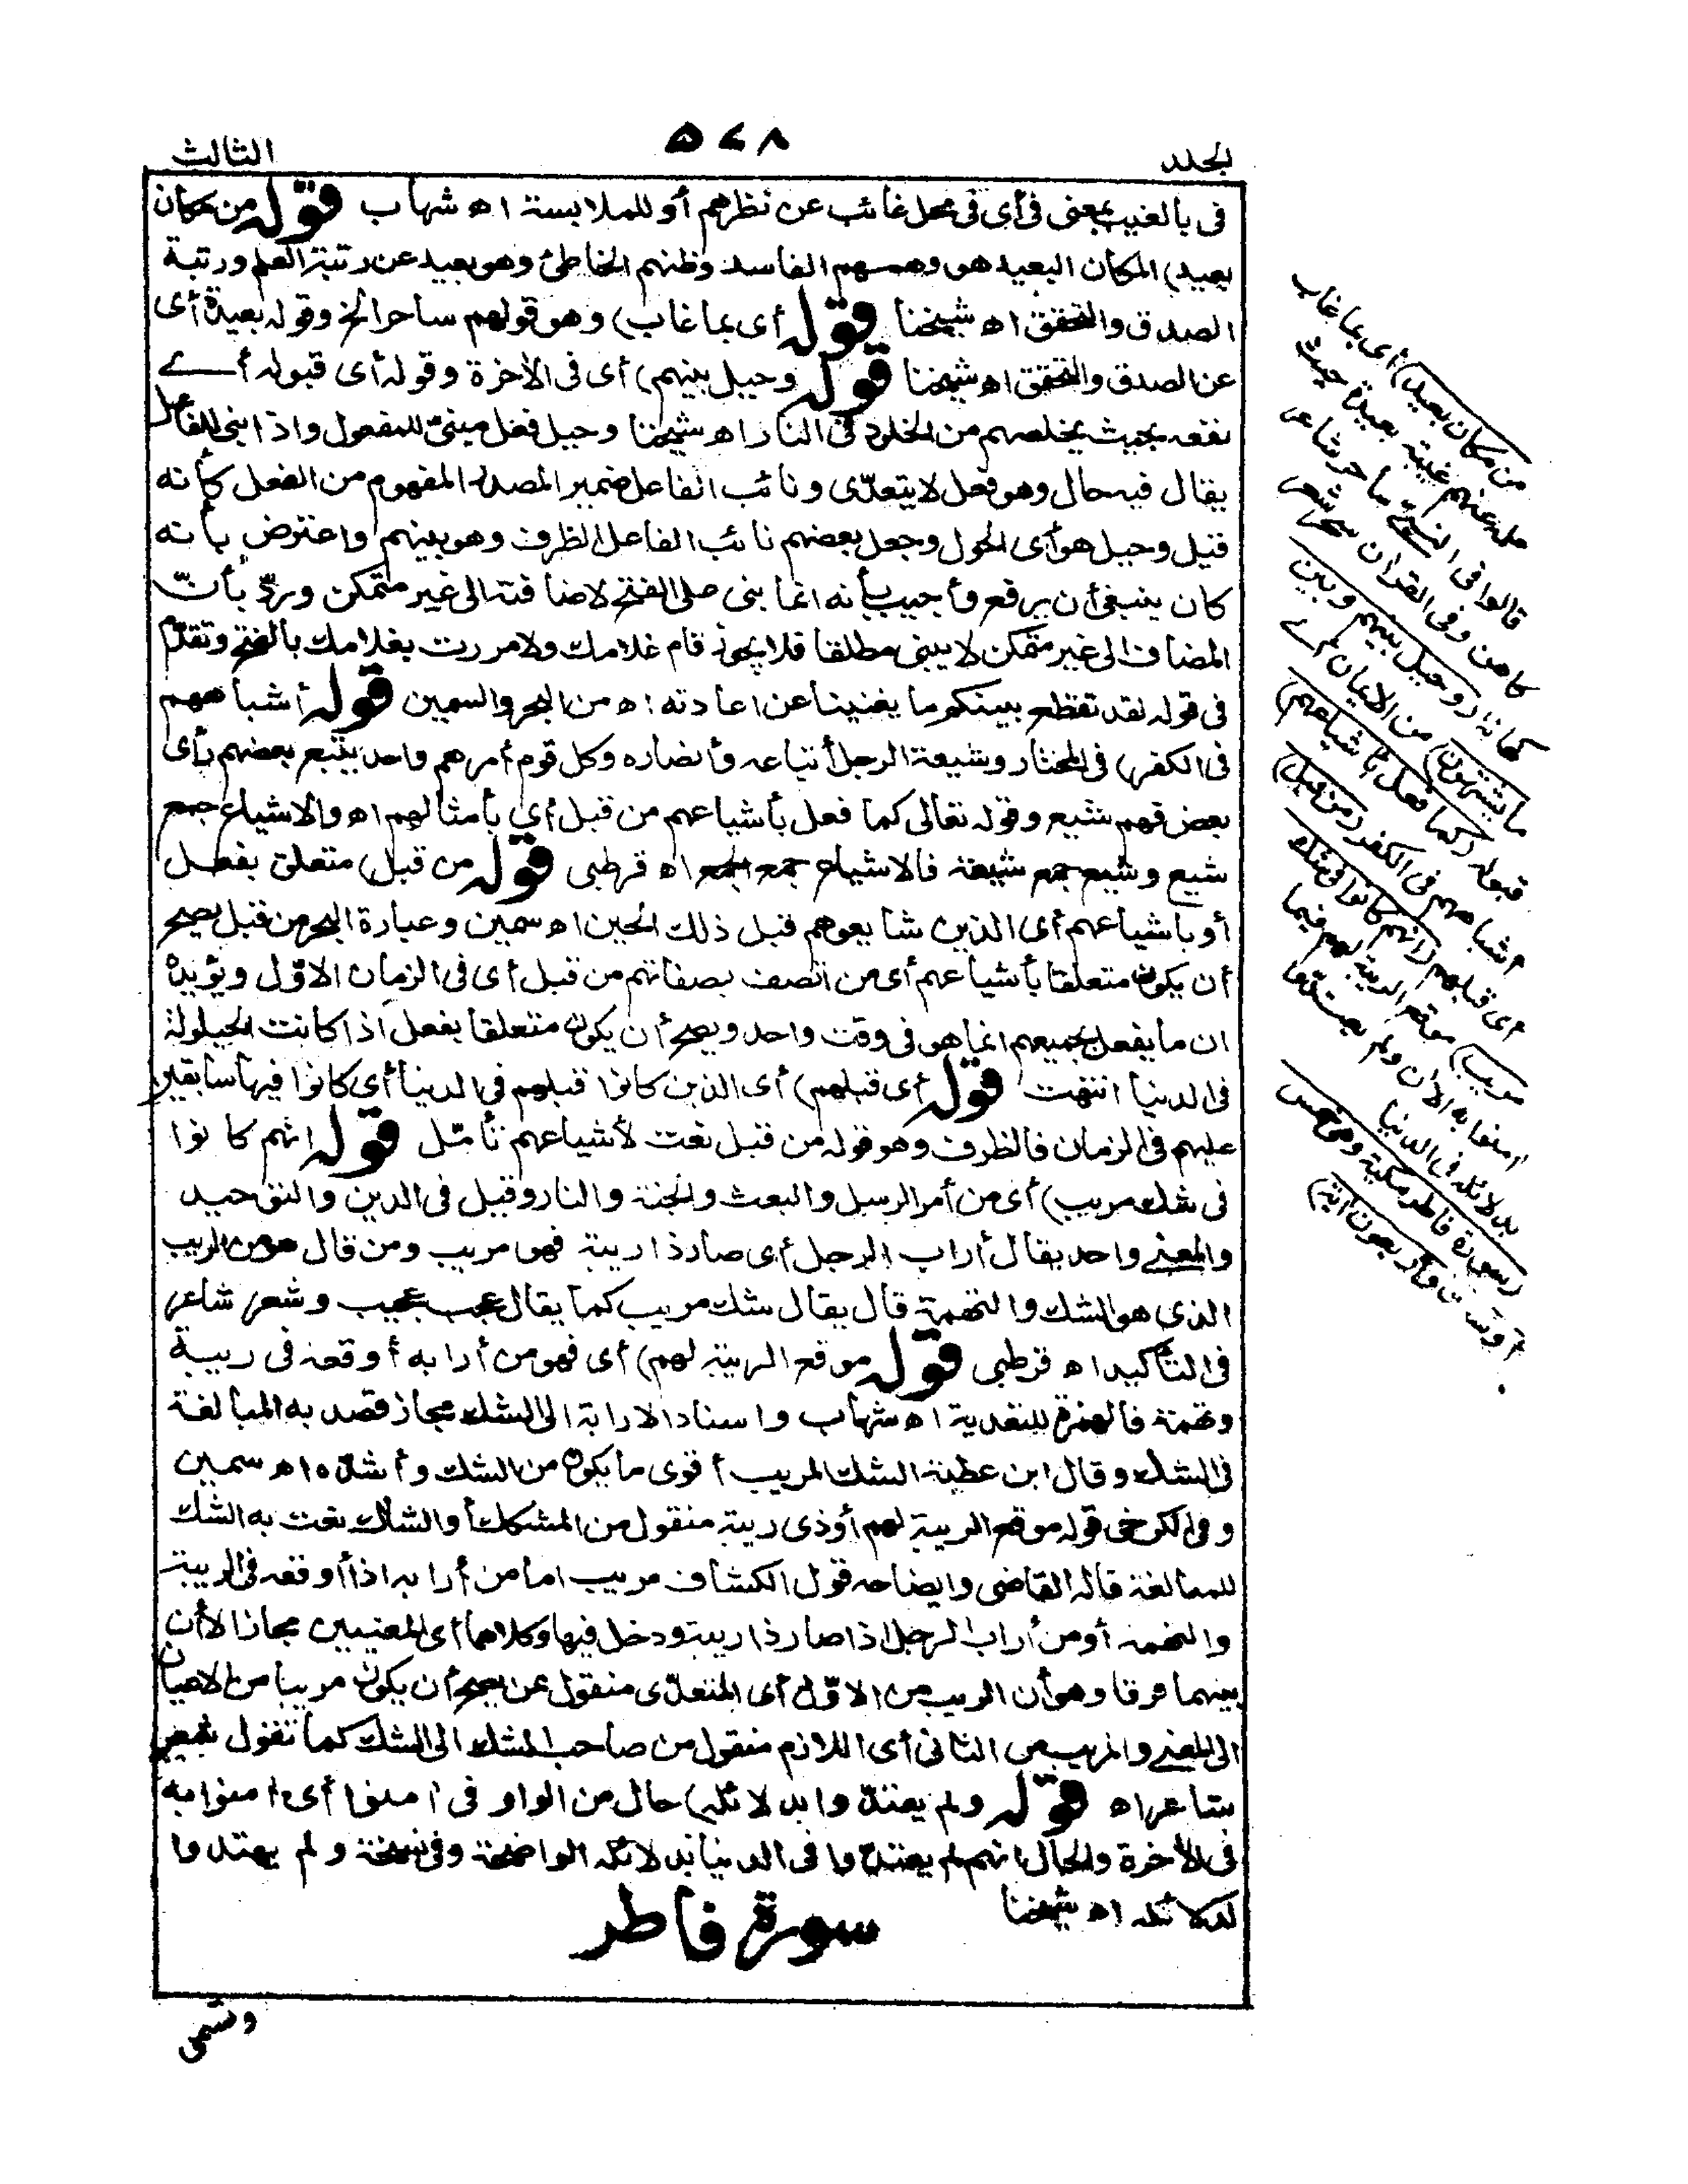 الجلد
٥٧٨
الثالث
فى بالغيب بمعنى فى أى فى محل غائب عن نظرهم أو للملابسة اه شهاب قوله من مكان
بعيد) المكان البعيد هو وهمهم الفاسد وظنهم الخاطئ وهو بعيد عن رتبة العلم ورتبة
الصدق والتحقق اه شيخنا قوله أى بما غاب) وهو قولهم ساحر الخ وقوله بعيدة أى
عن الصدق والتحقق اه شيخنا قوله وحيل بينهم) أى فى الآخرة وقوله أى قبوله أے
نفعه بحيث يخلصهم من الخلود فى النار اه شيخنا وحيل فعل مبنىّ للمفعول واذا بنى للفاعل
يقال فيه حال وهو فعل لا يتعدّى ونائب الفاعل ضمير المصدر المفهوم من الفعل كأنه
قيل وحيل هو أى الحول وجعل بعضهم نائب الفاعل الظرف وهو بينهم واعترض بأنه
كان ينبغى أن يرفع وأجيب بأنه انما بنى على الفتح لاضافته الى غير متمكن وردّ بأنّ
المضاف الى غير متمكن لا يبنى مطلقا فلا يجوز قام غلامك ولا مررت بغلامك بالفتح وتقدّم
فى قوله لقد تقطع بينكم ما يغنينا عن اعادته اه من البحر والسمين قوله أشباههم
فى الكفر) فى المختار وشيعة الرجل أتباعه وأنصاره وكل قوم أمرهم واحد يتبع بعضهم رأى
بعض فهم شيع وقوله تعالى كما فعل بأشياعهم من قبل أى بأمثالهم اه والاشياع جمع
شيع وشيع جمع شيعة فالاشياع جمع الجمع اه قرطبى قوله من قبل) متعلق بفعل
أو باشياعهم أى الذين شايعوهم قبل ذلك الحين اه سمين وعبارة البحر من قبل يصح
أن يكون متعلقا بأشياعهم أى من اتصف بصفاتهم من قبل أى فى الزمان الاوّل ويؤيده
ان ما يفعل بجميعهم انما هو فى وقت واحد ويصح أن يكون متعلقا بفعل اذا كانت الحيلولة
فى الدنيا انتهت قوله أى قبلهم) أى الذين كانوا قبلهم فى الدنيا أى كانوا فيها سابقين
عليهم فى الزمان فالظرف وهو قوله من قبل نعت لأشياعهم تأمّل قوله انهم كانوا
فى شك مريب) أى من أمر الرسل والبعث والجنة والنار وقيل فى الدين والتوحيد
والمعنے واحد يقال أراب الرجل أى صار ذا ريبة فهو مريب ومن قال هو من الريب
الذى هو الشك والتهمة قال يقال شك مريب كما يقال عجب عجيب وشعر شاعر
فى التأكيد اه قرطبى قوله موقع الريبة لهم) أى فهو من أرابه أوقعه فى ريبة
وتهمة فالهمزة للتعدية اه شهاب واسناد الارابة الى الشك مجاز قصد به المبالغة
فى الشك وقال ابن عطية الشك المريب أقوى ما يكون من الشك وأشدّه اه سمين
وفى الكرخى قوله موقع الريبة لهم أو ذى ريبة منقول من المشكك أو الشاك نعت به الشك
للمبالغة قاله القاضى وايضاحه قول الكشاف مريب اما من أرابه اذا أوقعه فى الريبة
والتهمة أو من أراب الرجل اذا صار ذا ريبة ودخل فيها وكلاهما أى المعنيين مجاز الا أن
بينهما فرقا وهو أن المريب من الاوّل أى المتعدّى منقول عن يصح أن يكون مريبا من الاعيان
الى المعنے والمريب من الثانى أى اللازم منقول من صاحب الشك الى الشك كما تقول شعر
شاعر اه قوله ولم يعتدّوا بدلائله) حال من الواو فى آمنوا أى آمنوا به
فى الآخرة والحال انهم لم يعتدّوا فى الدنيا بدلائله الواضحة وفى نسخة ولم يهتدوا
لدلائله اه شيخنا
سورة فاطر
وتسمى
من مكان بعيد) أى بما غاب
علمه عنهم غيبة بعيدة حيث
قالوا فى النبى ساحر شاعر
كاهن وفى القرآن سحر شعر
كهانة (وحيل بينهم وبين
ما يشتهون) من الايمان أے
قبوله (كما فعل بأشياعهم)
أشباههم فى الكفر (من قبل)
أى قبلهم (انهم كانوا فى شك
مريب) موقع الريبة لهم فيما
آمنوا به الآن ولم يعتدوا
بدلائله فى الدنيا
(سورة فاطر مكية وهى خمس
أو ست وأربعون آية)